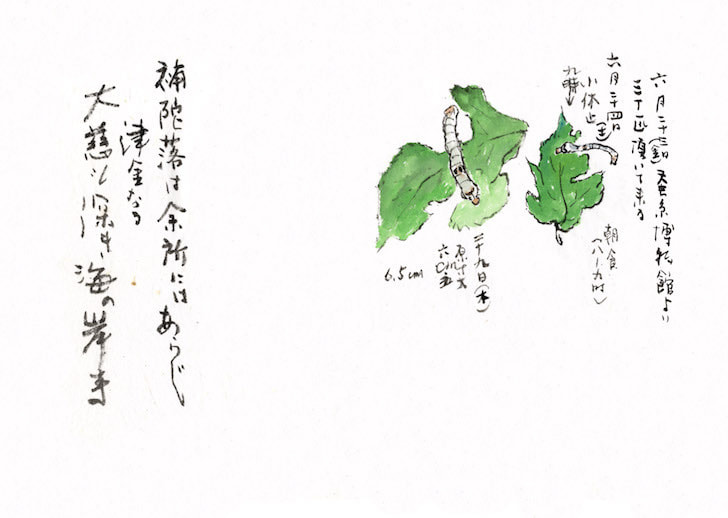 六月二十三日(金)蚕糸博物館より
三十匹頂いて来る
六月二十四日(土)
小休止
九時
朝食
(八〜九時)
二十九日(木)
原寸大
六cm五
6.5cm
補陀落は余所にはあらじ
津金なる
大慈も深き海の岸寺